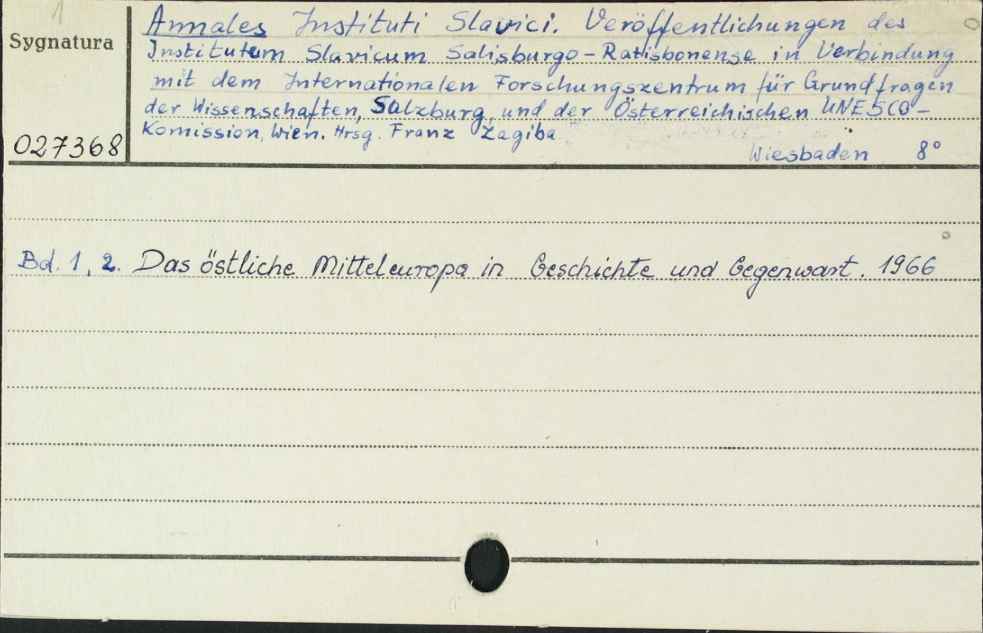 1
Sygnatura
027368
Annales Instituti Slavici. Veröffentlichungen des
Institutum Slavicum Salisburgo-Ratisbonense in Verbindung
mit dem Internationalen Forschungszentrum für Grundfragen
der Wissenschaften, Salzburg, und der Österreichischen UNESCO-
Komission, Wien. Hrsg. Franz Zagiba
Wiesbaden 8°
Bd. 1, 2. Das östliche Mitteleuropa in Geschichte und Gegenwart. 1966